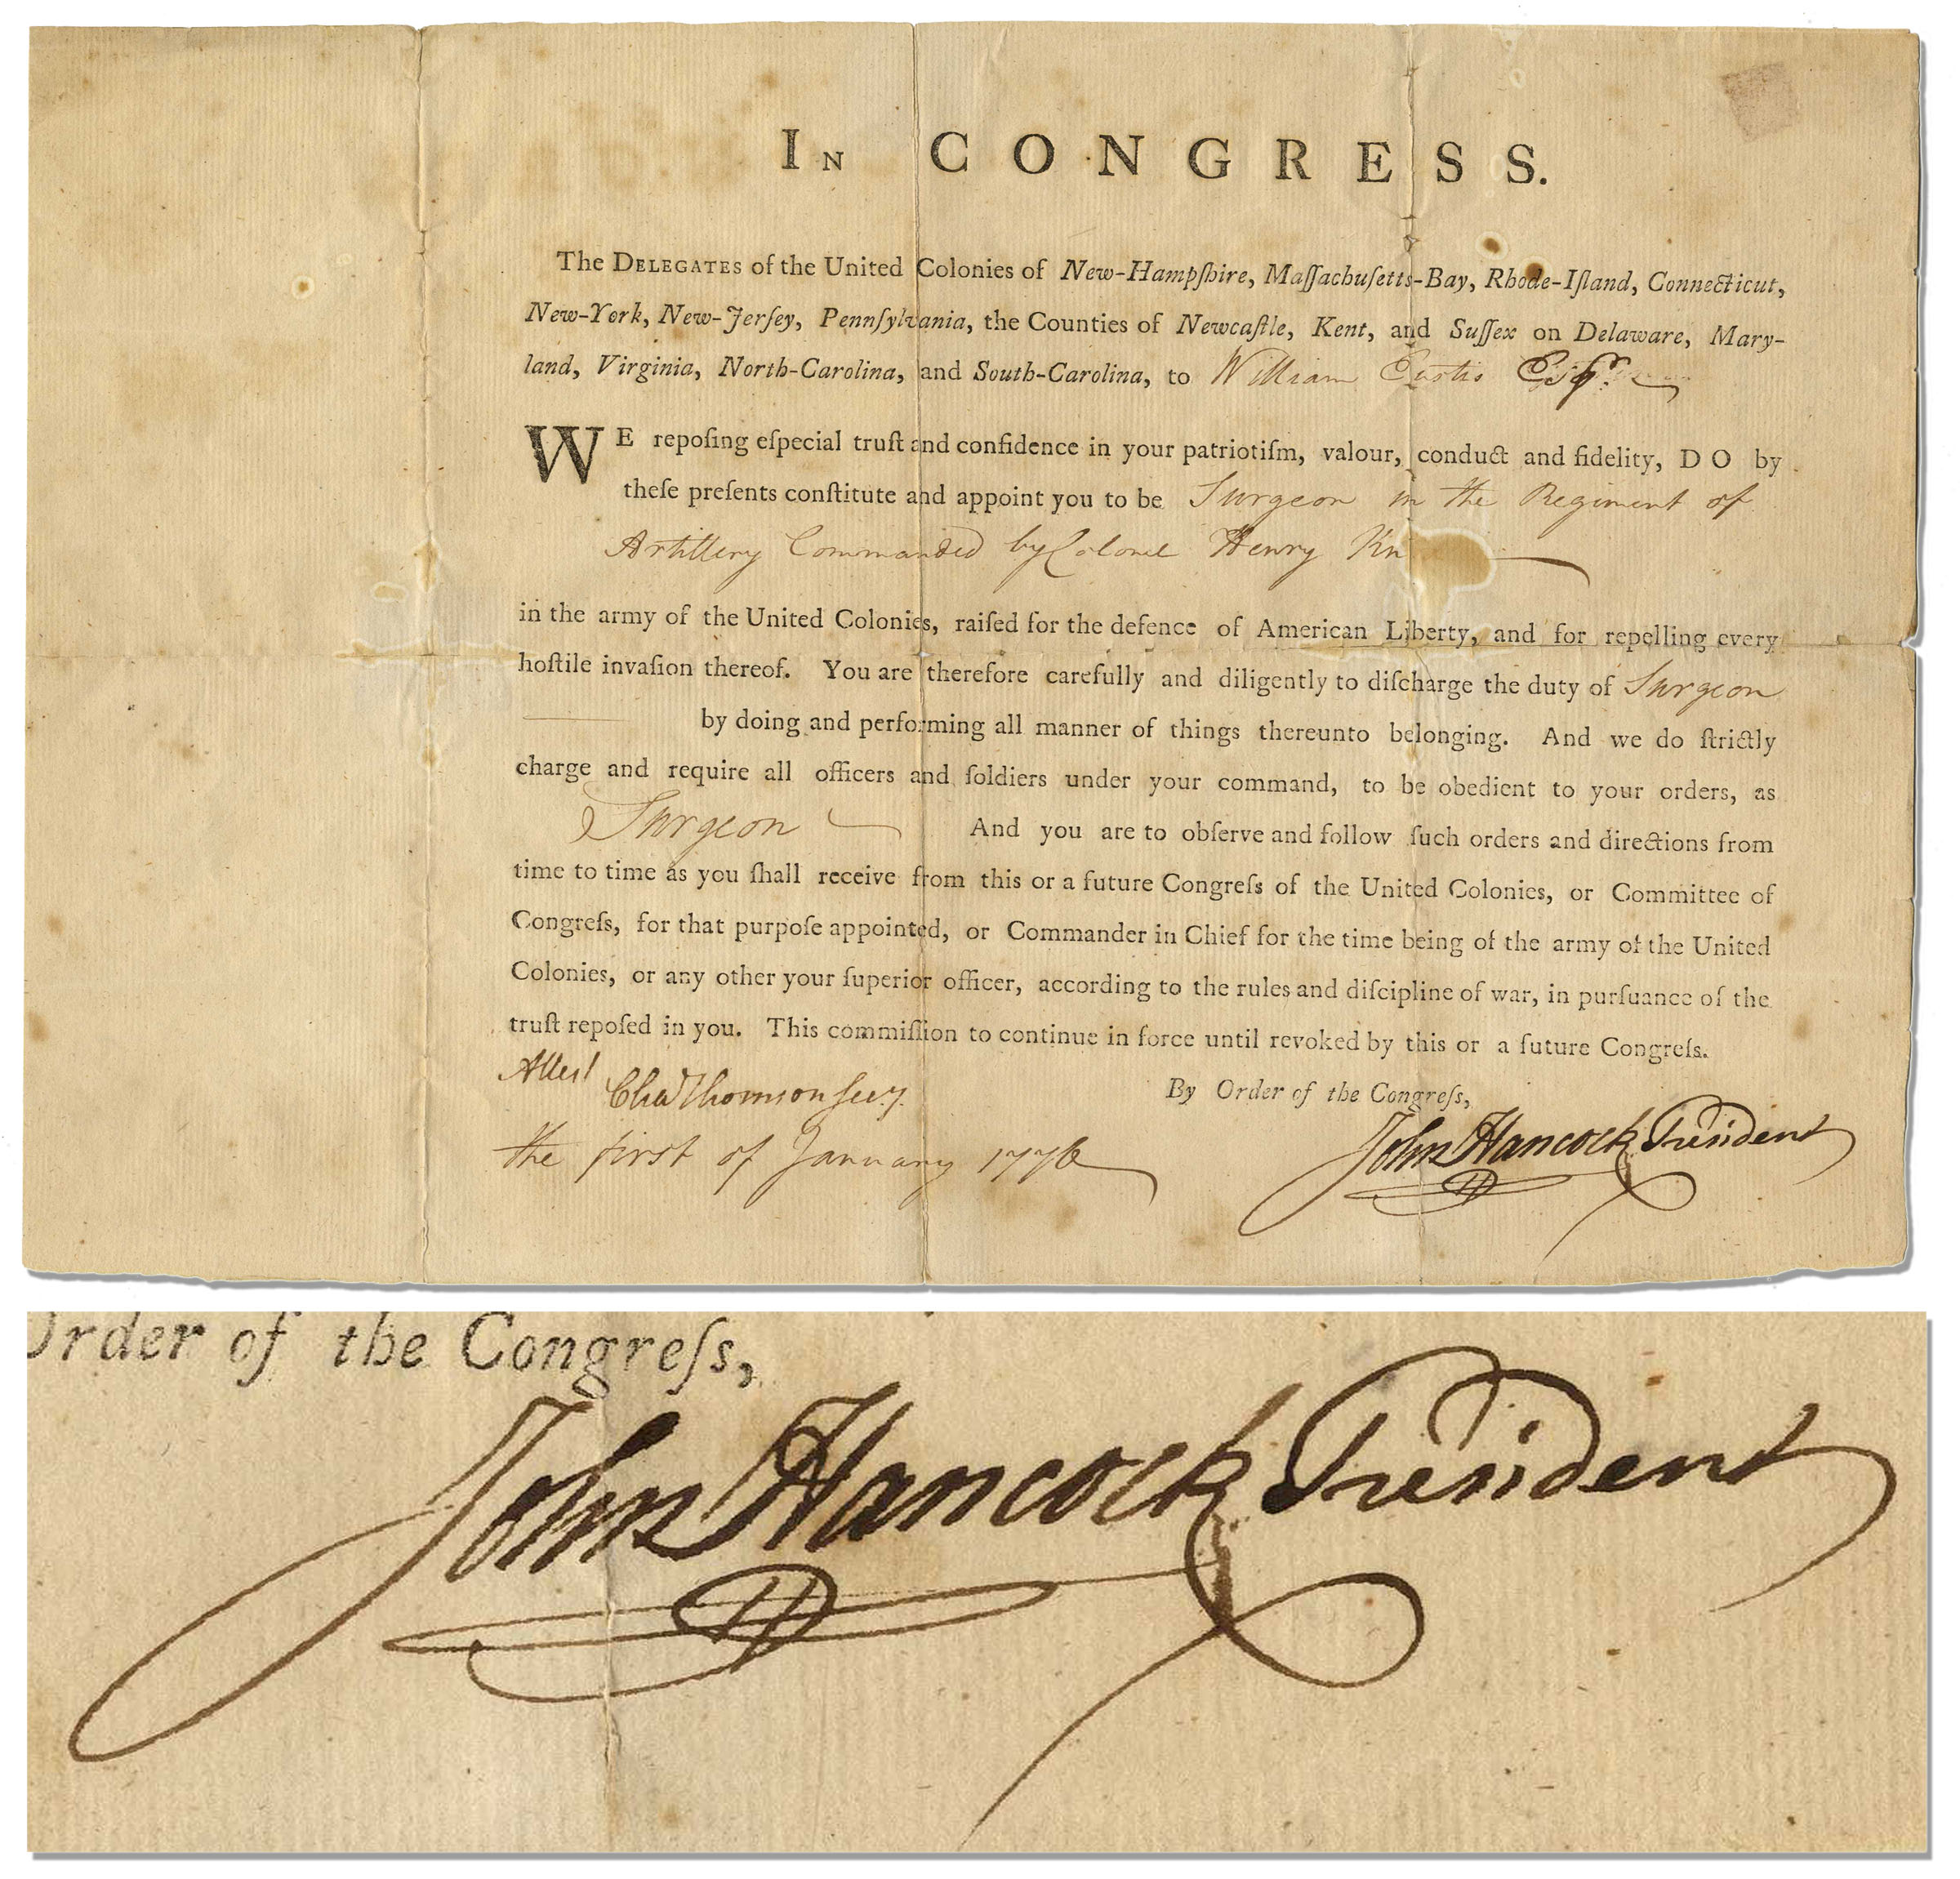 In CONGRESS.
The DELEGATES of the United Colonies of New-Hampſhire, Maſſachuſetts-Bay, Rhode-Iſland, Connecticut,
New-York, New-Jerſey, Pennſylvania, the Counties of Newcaſtle, Kent, and Suſſex on Delaware, Mary-
land, Virginia, North-Carolina, and South-Carolina, to William Eustis Esqr.
WE repoſing eſpecial truſt and confidence in your patriotiſm, valour, conduct and fidelity, DO by
theſe preſents conſtitute and appoint you to be Surgeon in the Regiment of
Artillery Commanded by Colonel Henry Kn
in the army of the United Colonies, raiſed for the defence of American Liberty, and for repelling every
hoſtile invaſion thereof. You are therefore carefully and diligently to diſcharge the duty of Surgeon
by doing and performing all manner of things thereunto belonging. And we do ſtrictly
charge and require all officers and ſoldiers under your command, to be obedient to your orders, as
Surgeon And you are to obſerve and follow ſuch orders and directions from
time to time as you ſhall receive from this or a future Congreſs of the United Colonies, or Committee of
Congreſs, for that purpoſe appointed, or Commander in Chief for the time being of the army of the United
Colonies, or any other your ſuperior officer, according to the rules and diſcipline of war, in purſuance of the
truſt repoſed in you. This commiſſion to continue in force until revoked by this or a future Congreſs.
Attest Chas Thomson Secy.
By Order of the Congreſs,
John Hancock President
the first of January 1776
Order of the Congreſs,
John Hancock President